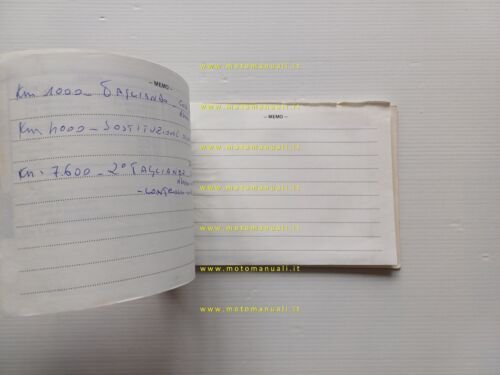 – MEMO –
Km 1000 – TAGLIANDO –
Km 4000 – SOSTITUZIONE
Km. 7.600 – 2° TAGLIANDO
– MEMO –
www.motomanuali.it
www.motomanuali.it
www.motomanuali.it
www.motomanuali.it
www.motomanuali.it
www.motomanuali.it
www.motomanuali.it